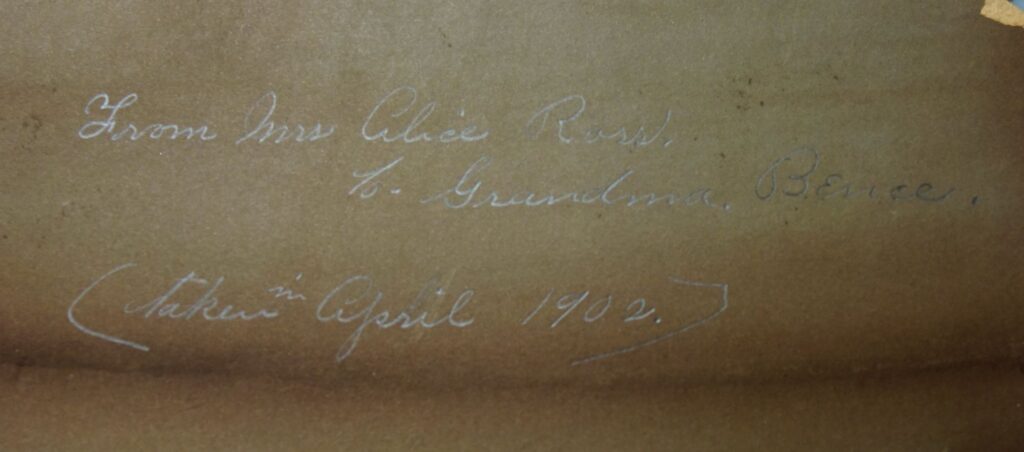 From Mrs Alice Ross.
to Grandma. Bence.
(taken in April 1902.)